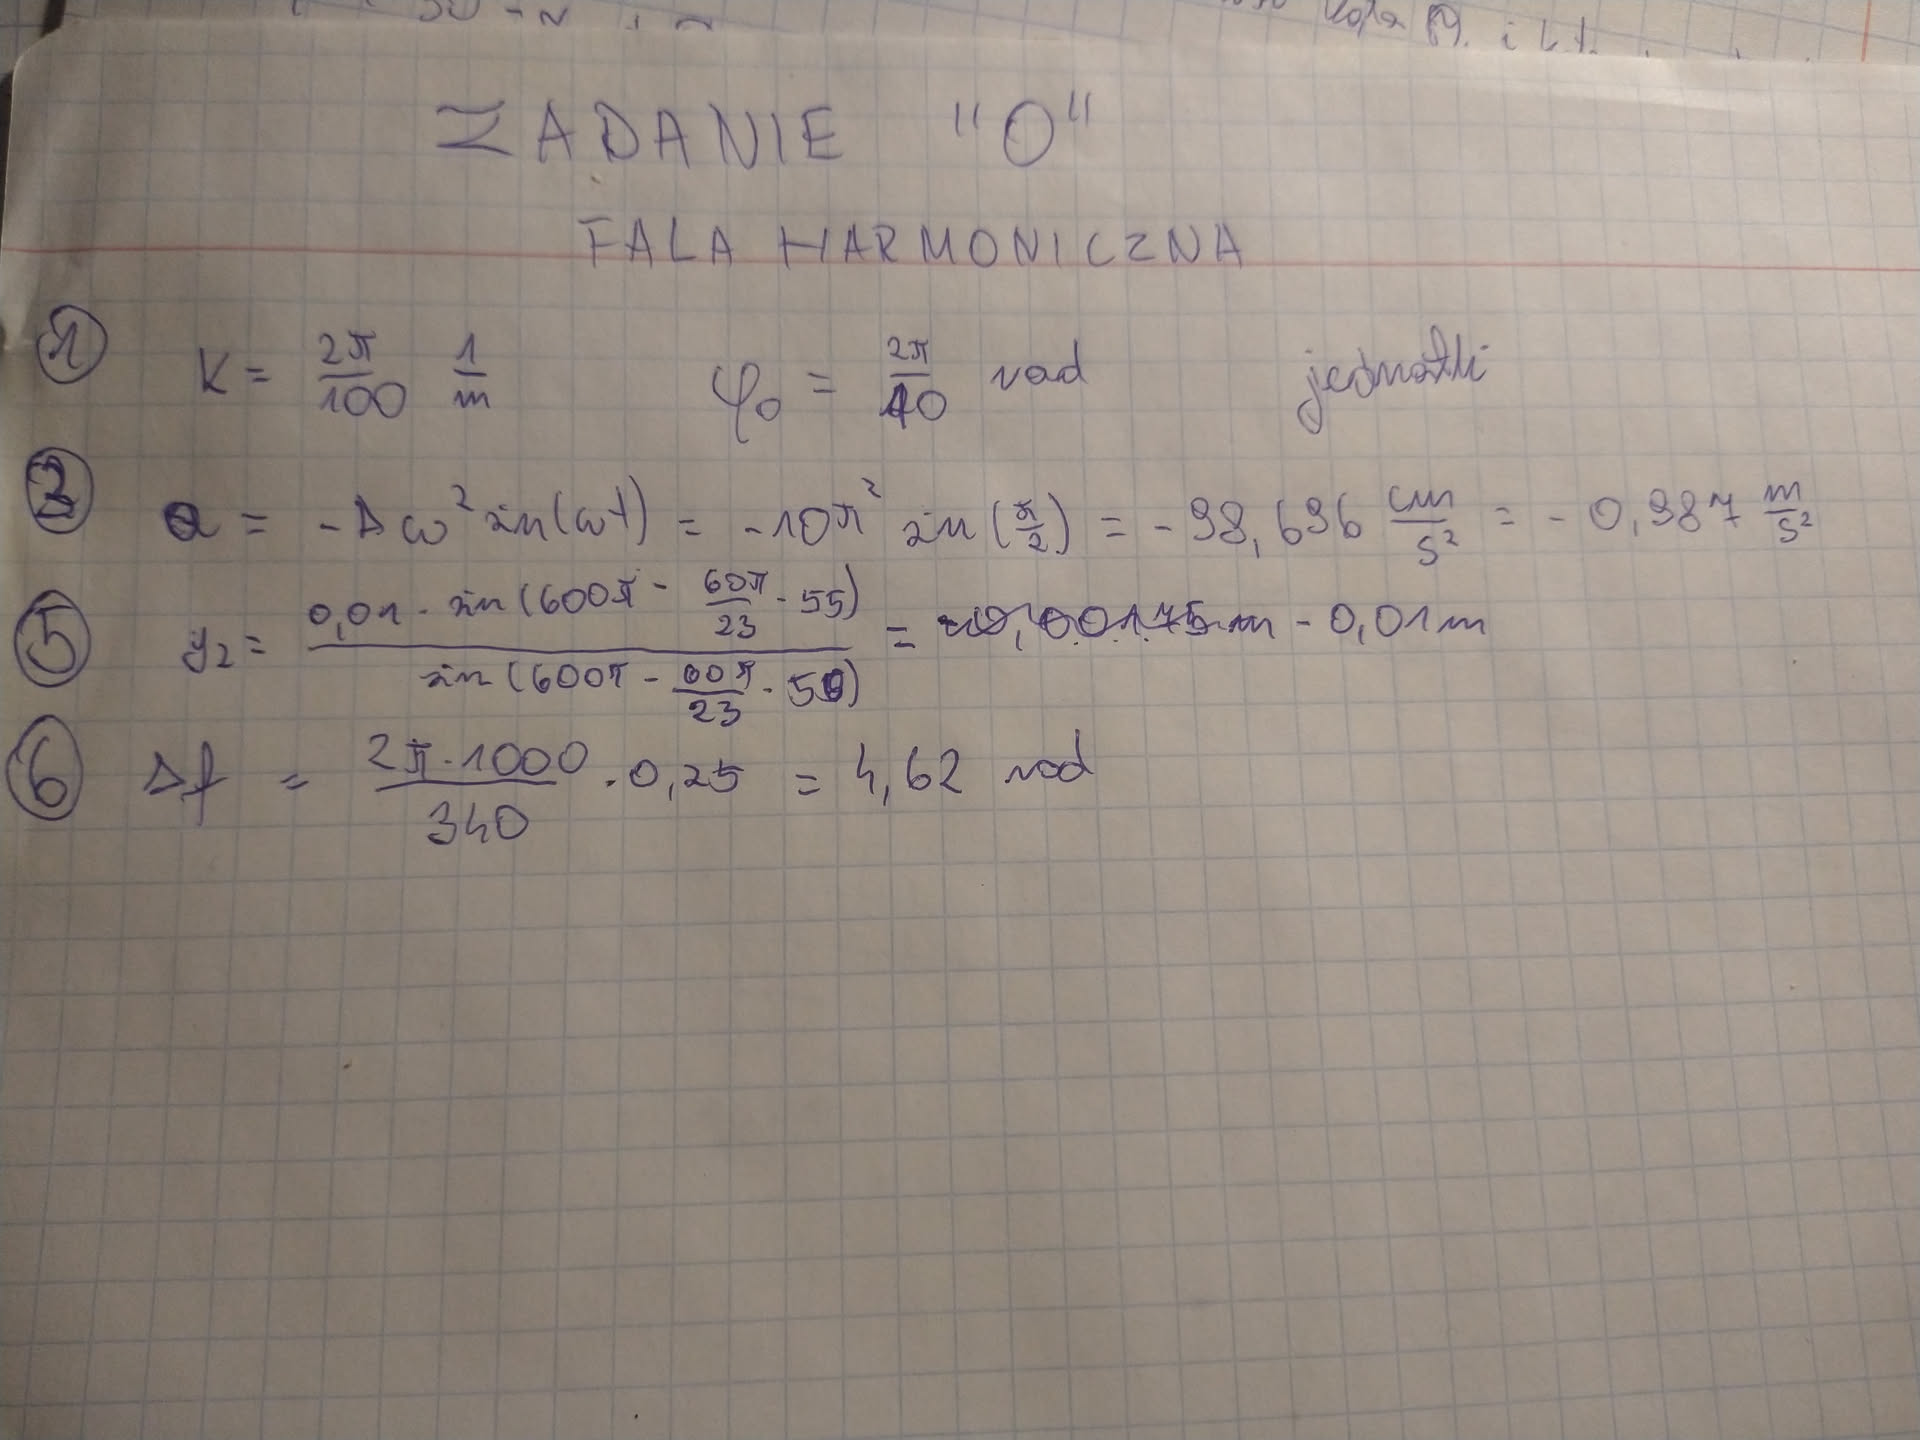 ZADANIE "0"
FALA HARMONICZNA
① K = 2π/100 1/m φ₀ = 2π/10 rad jednostki
② a = -Aω² sin(ωt) = -10π² sin(π/2) = -98,696 cm/s² = -0,987 m/s²
⑤ y₂ = 0,01 · sin(600π - 60π/23 · 55) / sin(600π - 60π/23 · 50) = - 0,01m
⑥ Δf = 2π·1000/340 · 0,25 = 4,62 rad